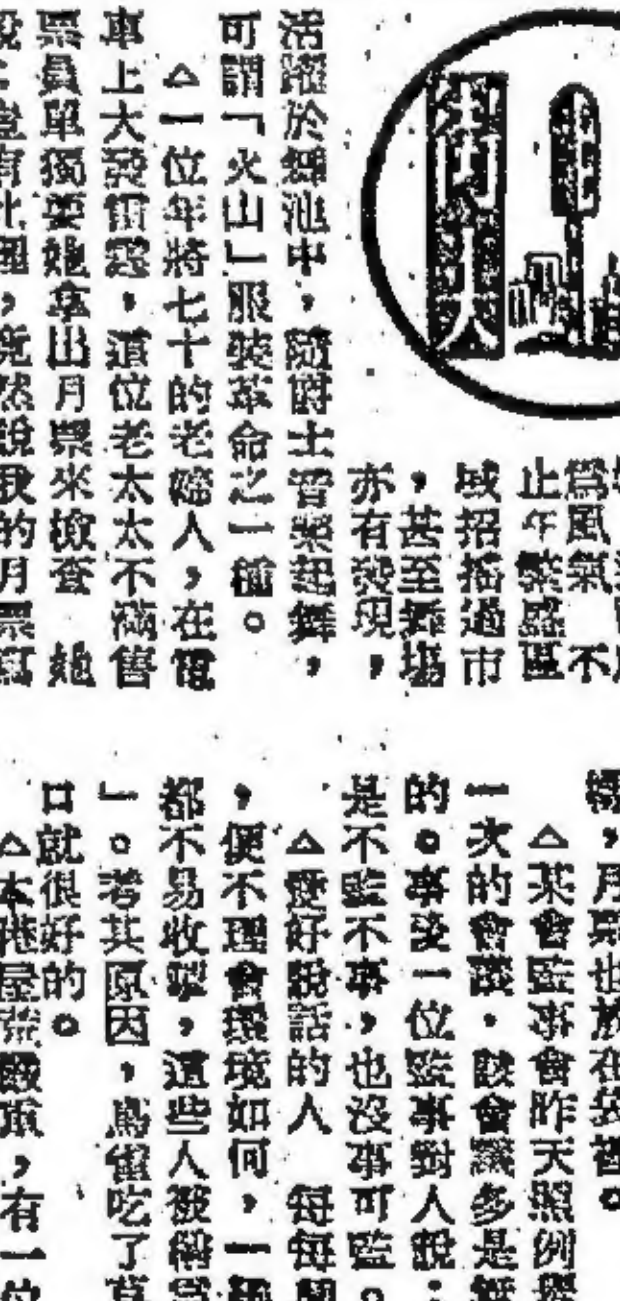 大街
爲風氣 不
止年繁盛區
域招搖過市
，甚至舞場
亦有發現，
活躍於舞池中，隨爵士音樂起舞，
可謂「火山」服裝革命之一種。
△一位年將七十的老婦人，在電
車上大發雷霆，這位老太太不滿售
票員單獨要她拿出月票來檢查 她
說：豈有此理，竟然說我的月票
，月票也放在袋裡。
△某會監事會昨天照例
一次的會議，該會議多是
的。事後一位監事對人說：
是不監不事，也沒事可監。
△愛好說話的人 每每
，便不理會環境如何，一
都不易收掣，這些人被
」。考其原因，鳥雀吃了
口就很好的。
△本港屋荒嚴重，有一位